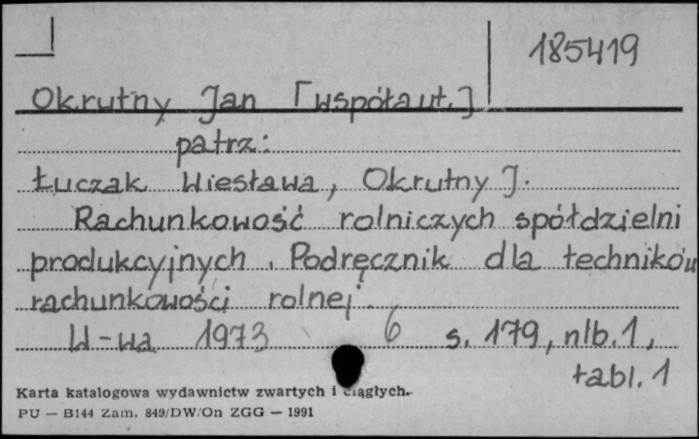 185419
Okrutny Jan [współaut.]
patrz:
Łuczak Wiesława, Okrutny J.
Rachunkowość rolniczych spółdzielni
produkcyjnych. Podręcznik dla techników
rachunkowości rolnej.
W-wa 1973 6 s. 179, nlb. 1,
tabl. 1
Karta katalogowa wydawnictw zwartych i ciągłych.
PU — B144 Zam. 849/DW/On ZGG — 1991